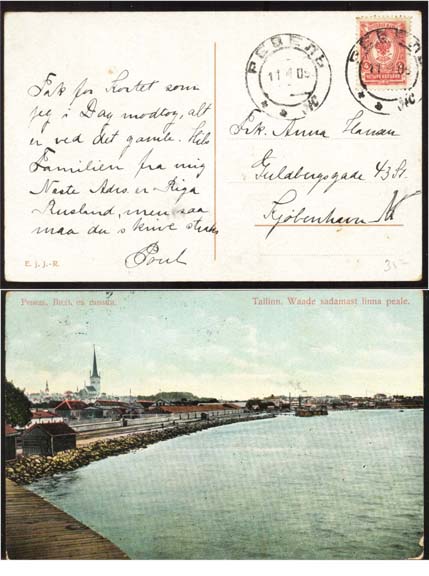 Tak for Kortet som
jeg i Dag modtog, alt
er ved det gamle. Hils
Familien fra mig
Næste Adrs. er Riga
Rusland, men saa
maa du skrive straks
Poul
E. j. J.-R.
РЕВЕЛЬ
РЕВЕЛЬ
Frk. Anna Hansen
Guldbergsgade 43 St.
Kjöbenhavn N
Ревель. Видъ съ
Tallinn. Waade sadamast linna peale.